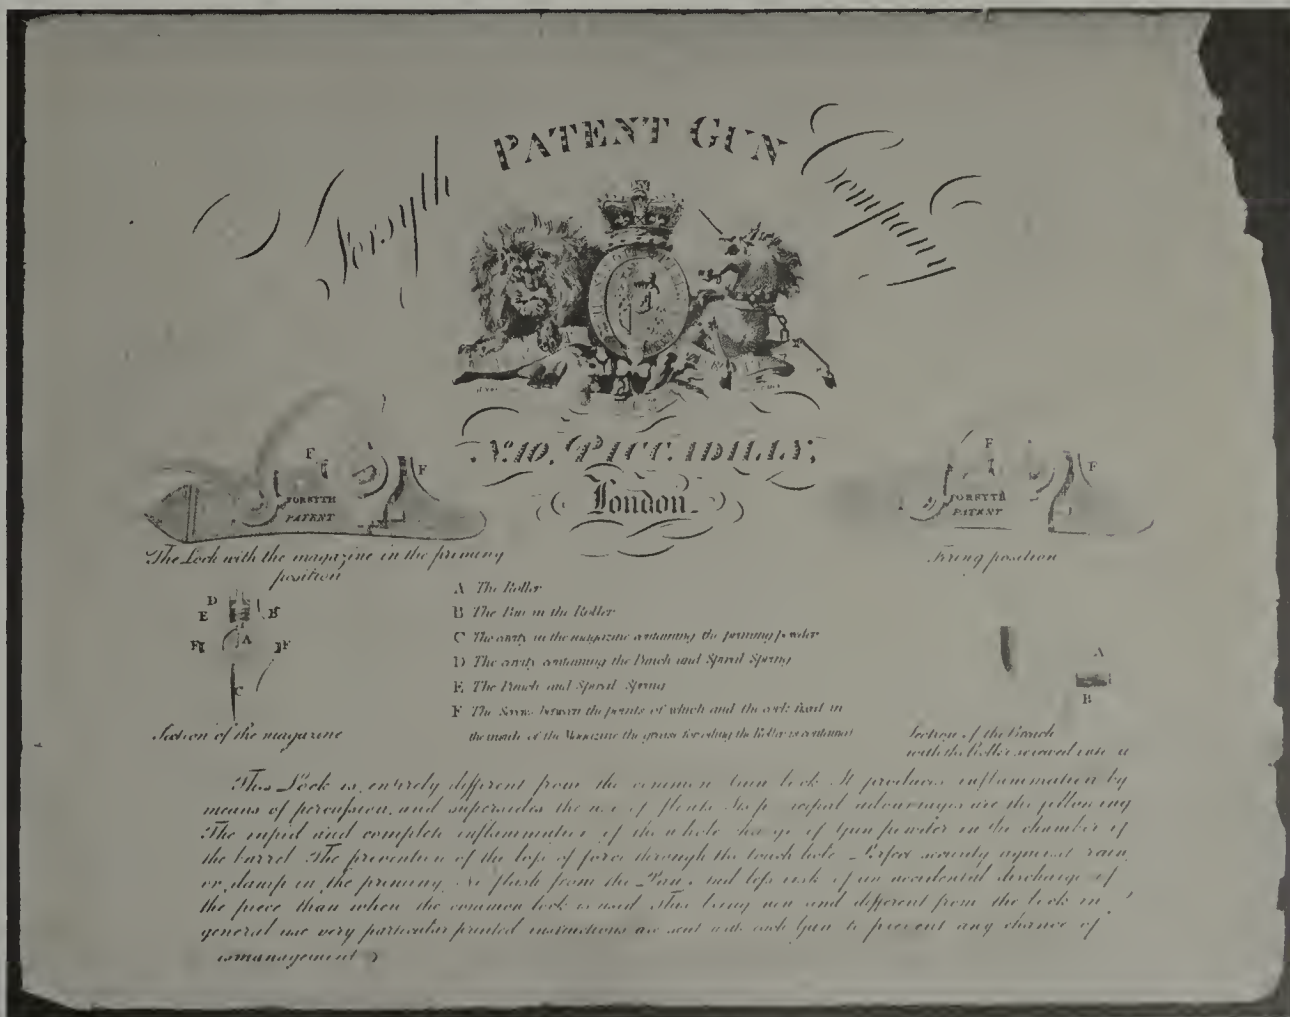 Forsyth PATENT GUN Company
No. 10, PICCADILLY,
London.
F F
FORSYTH
PATENT
F F
FORSYTH
PATENT
The Lock with the magazine in the priming
position
Firing position
D
E B
F A F
C
Section of the magazine
A The Roller
B The Pan in the Roller
C The cavity in the magazine containing the priming powder
D The cavity containing the Punch and Spiral Spring
E The Punch and Spiral Spring
F The Screws between the points of which and the cork fixed in
the inside of the Magazine the grease for oiling the Roller is contained
A
B
Section of the Breach
with the Roller screwed into it
This Lock is entirely different from the common Gun lock. It produces inflammation by
means of percussion, and supersides the use of flints. Its principal advantages are the following
The rapid and complete inflammation of the whole charge of Gun powder in the chamber of
the barrel The prevention of the loss of force through the touch hole Perfect security against rain
or damp in the priming. No flash from the Pan, and less risk of an accidental discharge of
the piece than when the common lock is used This being new and different from the lock in
general use very particular printed instructions are sent with each Gun to prevent any chance of
mismanagement